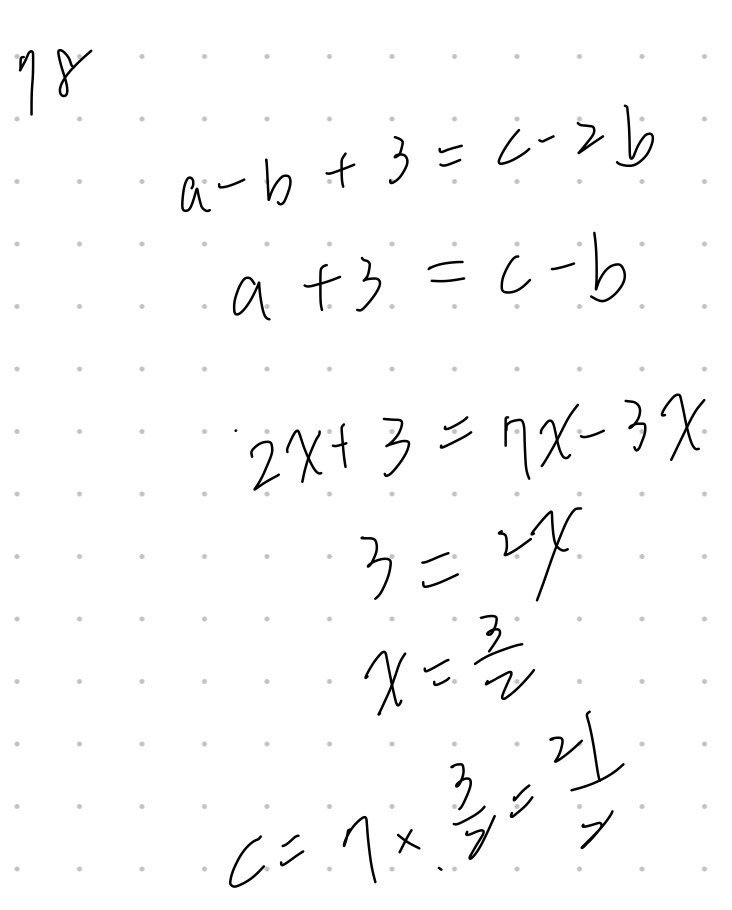 78
a - b + 3 = c - 2b
a + 3 = c - b
2x + 3 = 7x - 3x
3 = 2x
x = 3/2
c = 7 × 3/2 = 21/2